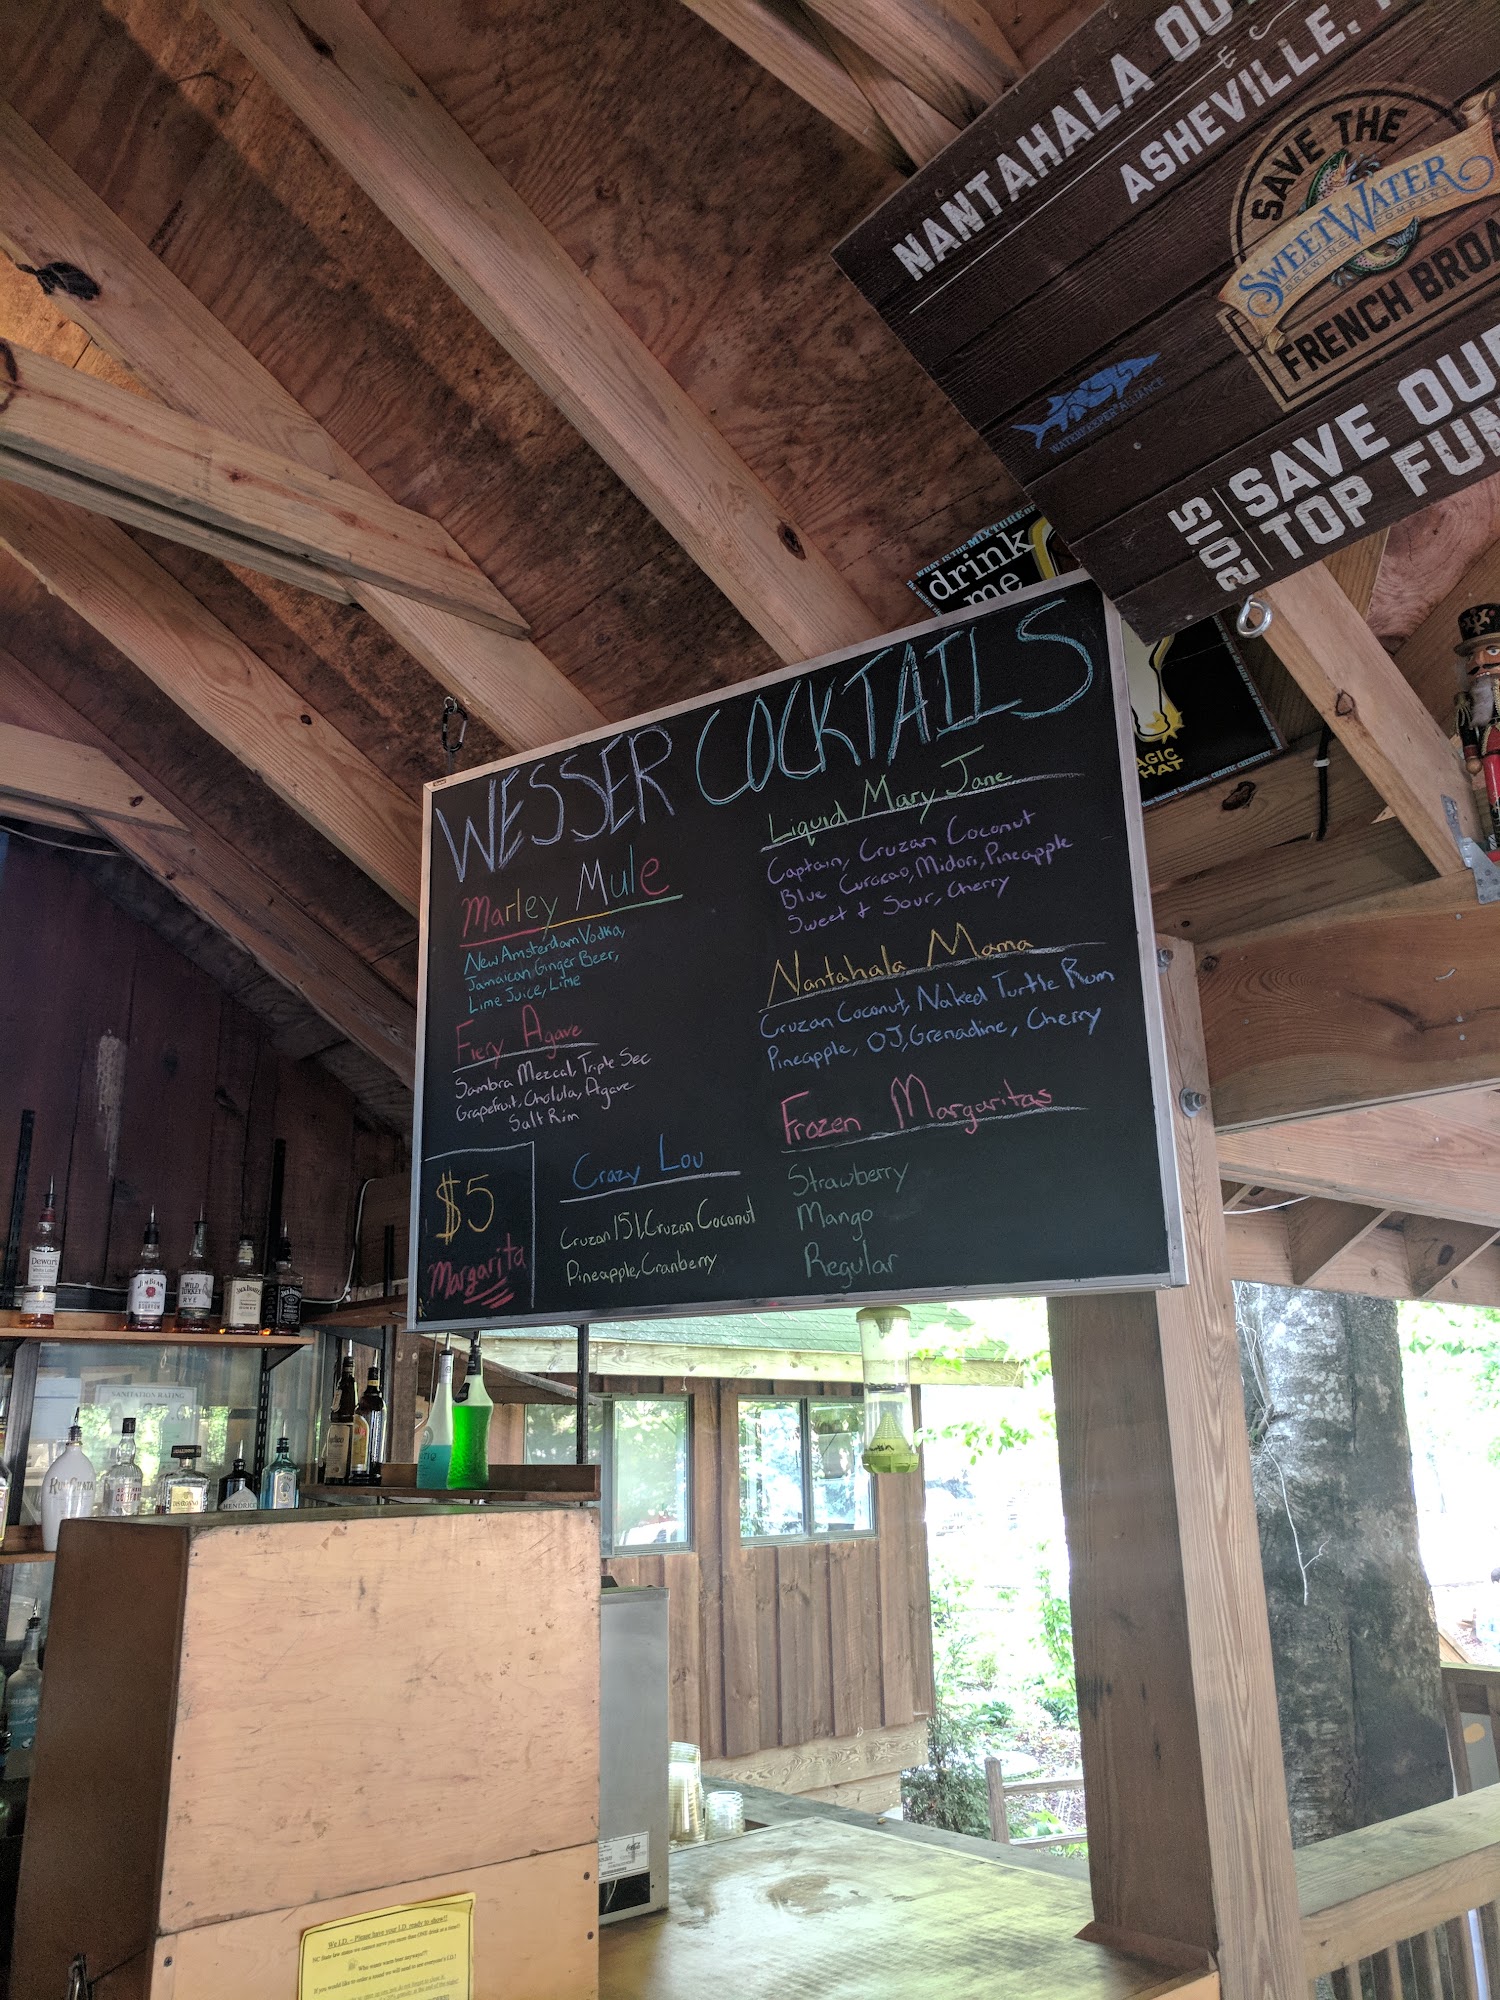 NANTAHALA OU
ASHEVILLE,
SAVE THE
SWEETWATER
BREWING COMPANY
FRENCH BROA
WATERKEEPER ALLIANCE
2015
SAVE OUR
TOP FUN
WHAT IS THE MIXTURE OF
drink
me
AGIC
HAT
WESSER COCKTAILS
Marley Mule
New Amsterdam Vodka,
Jamaican Ginger Beer,
Lime Juice, Lime
Fiery Agave
Sambra Mezcal, Triple Sec
Grapefruit, Cholula, Agave
Salt Rim
$5
Margarita
Crazy Lou
Cruzan 151, Cruzan Coconut
Pineapple, Cranberry
Liquid Mary Jane
Captain, Cruzan Coconut
Blue Curacao, Midori, Pineapple
Sweet & Sour, Cherry
Nantahala Mama
Cruzan Coconut, Naked Turtle Rum
Pineapple, OJ, Grenadine, Cherry
Frozen Margaritas
Strawberry
Mango
Regular
Dewar's
JIM BEAM
WILD TURKEY
RYE
JACK DANIEL'S
SANITATION RATING
RUMCHATA
HENDRICK'S
We I.D. - Please have your I.D. ready to show!!
NC State law states we cannot serve you more than ONE drink at a time!!